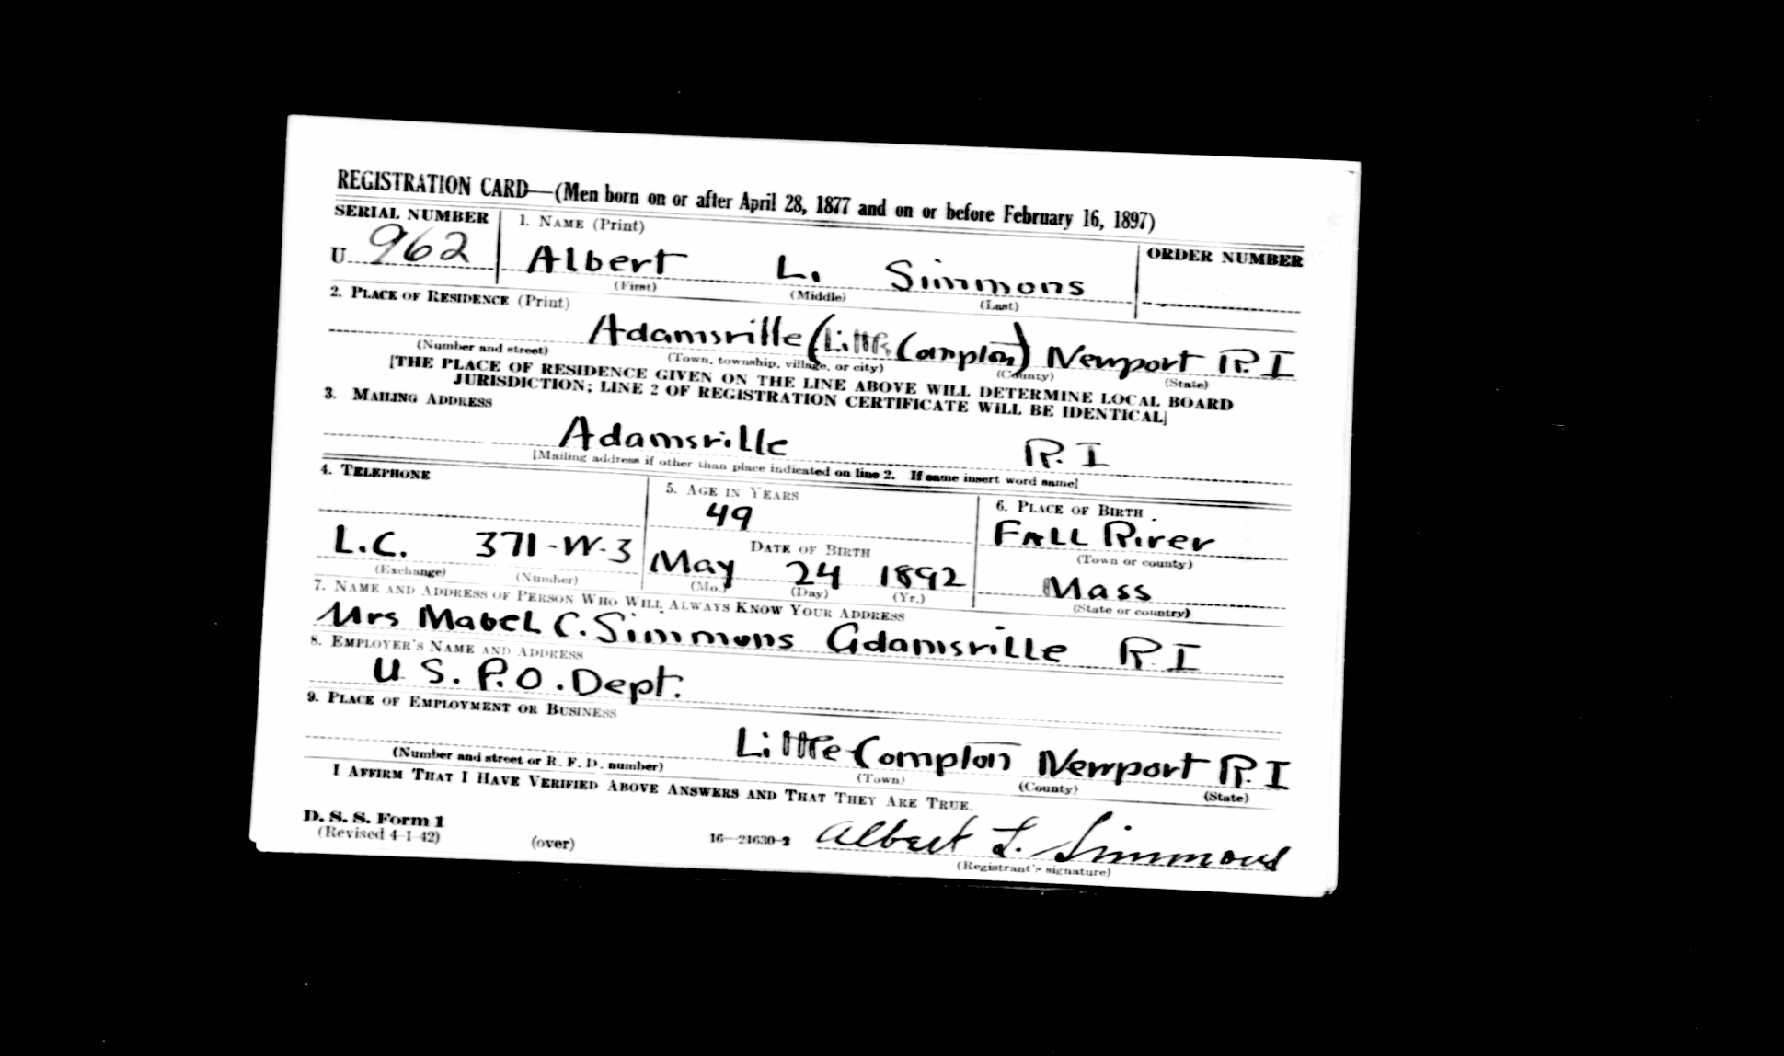 REGISTRATION CARD—(Men born on or after April 28, 1877 and on or before February 16, 1897)
SERIAL NUMBER
1. NAME (Print)
ORDER NUMBER
U 962
Albert L. Simmons
(First) (Middle) (Last)
2. PLACE OF RESIDENCE (Print)
Adamsville (Little Compton) Newport R.I
(Number and street) (Town, township, village, or city) (County) (State)
[THE PLACE OF RESIDENCE GIVEN ON THE LINE ABOVE WILL DETERMINE LOCAL BOARD
JURISDICTION; LINE 2 OF REGISTRATION CERTIFICATE WILL BE IDENTICAL]
3. MAILING ADDRESS
Adamsville R.I
[Mailing address if other than place indicated on line 2. If same insert word same]
4. TELEPHONE
5. AGE IN YEARS
6. PLACE OF BIRTH
49
Fall River
(Town or county)
L.C. 371-W-3
DATE OF BIRTH
May 24 1892
Mass
(Exchange) (Number) (Mo.) (Day) (Yr.) (State or country)
7. NAME AND ADDRESS OF PERSON WHO WILL ALWAYS KNOW YOUR ADDRESS
Mrs Mabel C. Simmons Adamsville R.I
8. EMPLOYER'S NAME AND ADDRESS
U S. P.O. Dept.
9. PLACE OF EMPLOYMENT OR BUSINESS
Little Compton Newport R.I
(Number and street or R. F. D. number) (Town) (County) (State)
I AFFIRM THAT I HAVE VERIFIED ABOVE ANSWERS AND THAT THEY ARE TRUE.
D. S. S. Form 1
(Revised 4-1-42) (over) 16—21630-2 Albert L. Simmons
(Registrant's signature)